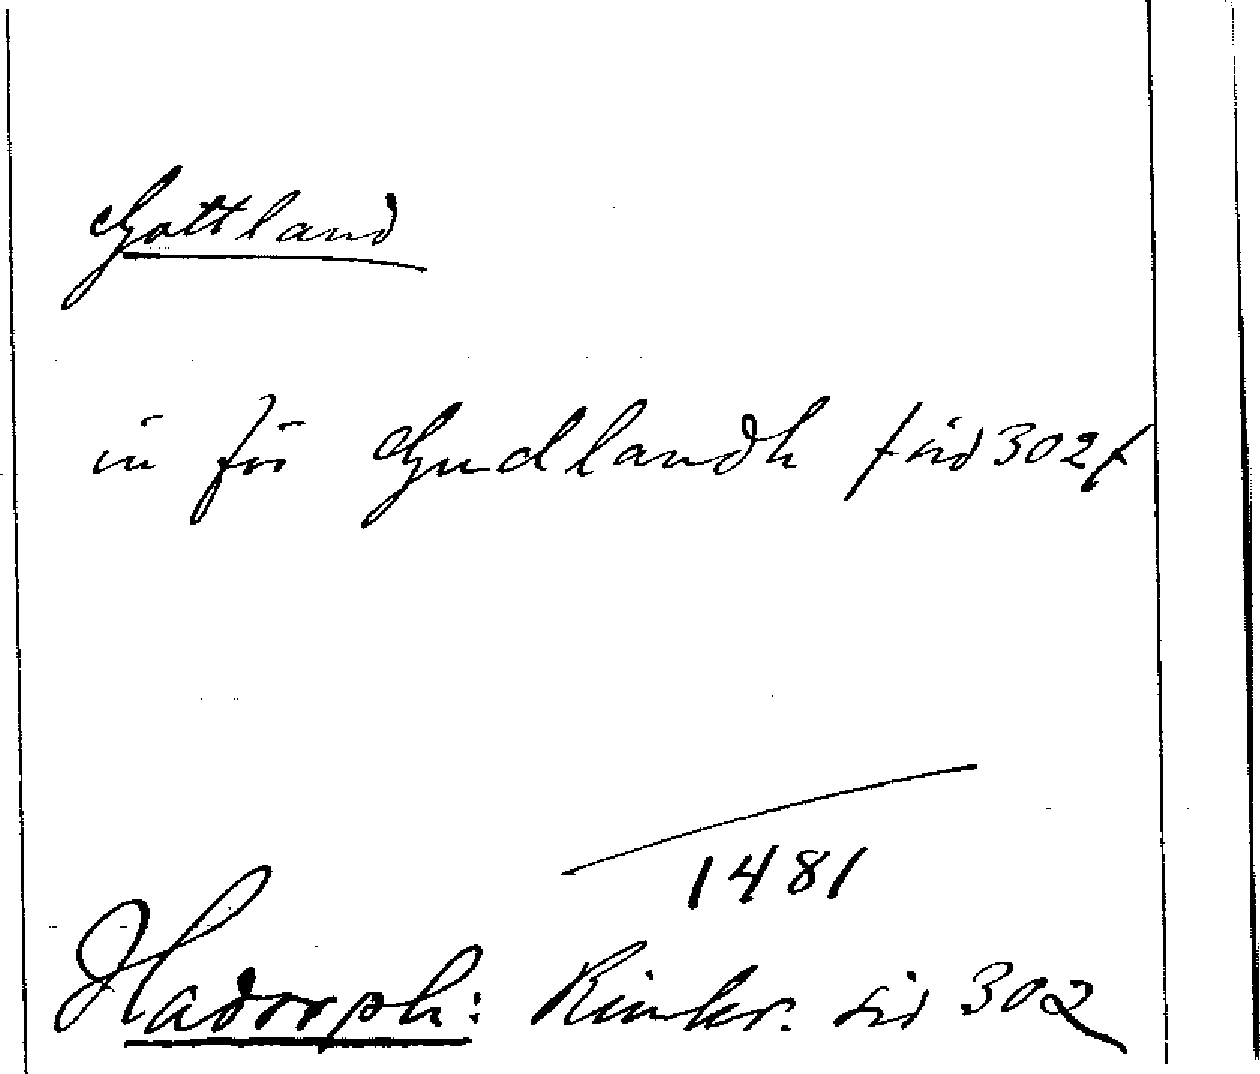 Gottland
in för Gudlandh / sid 302 f
1481
Hadorph: Rimkr. sid 302